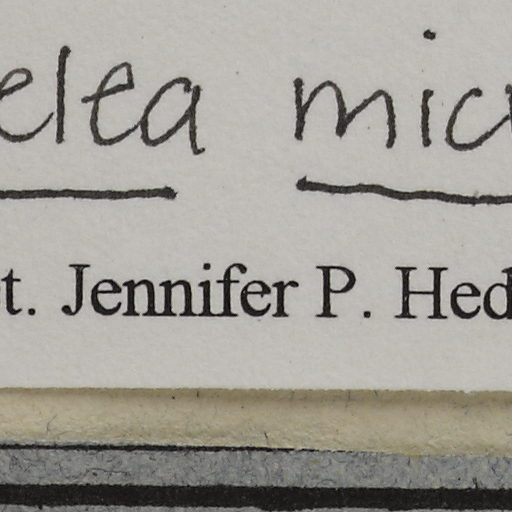 elea mic
t. Jennifer P. Hed